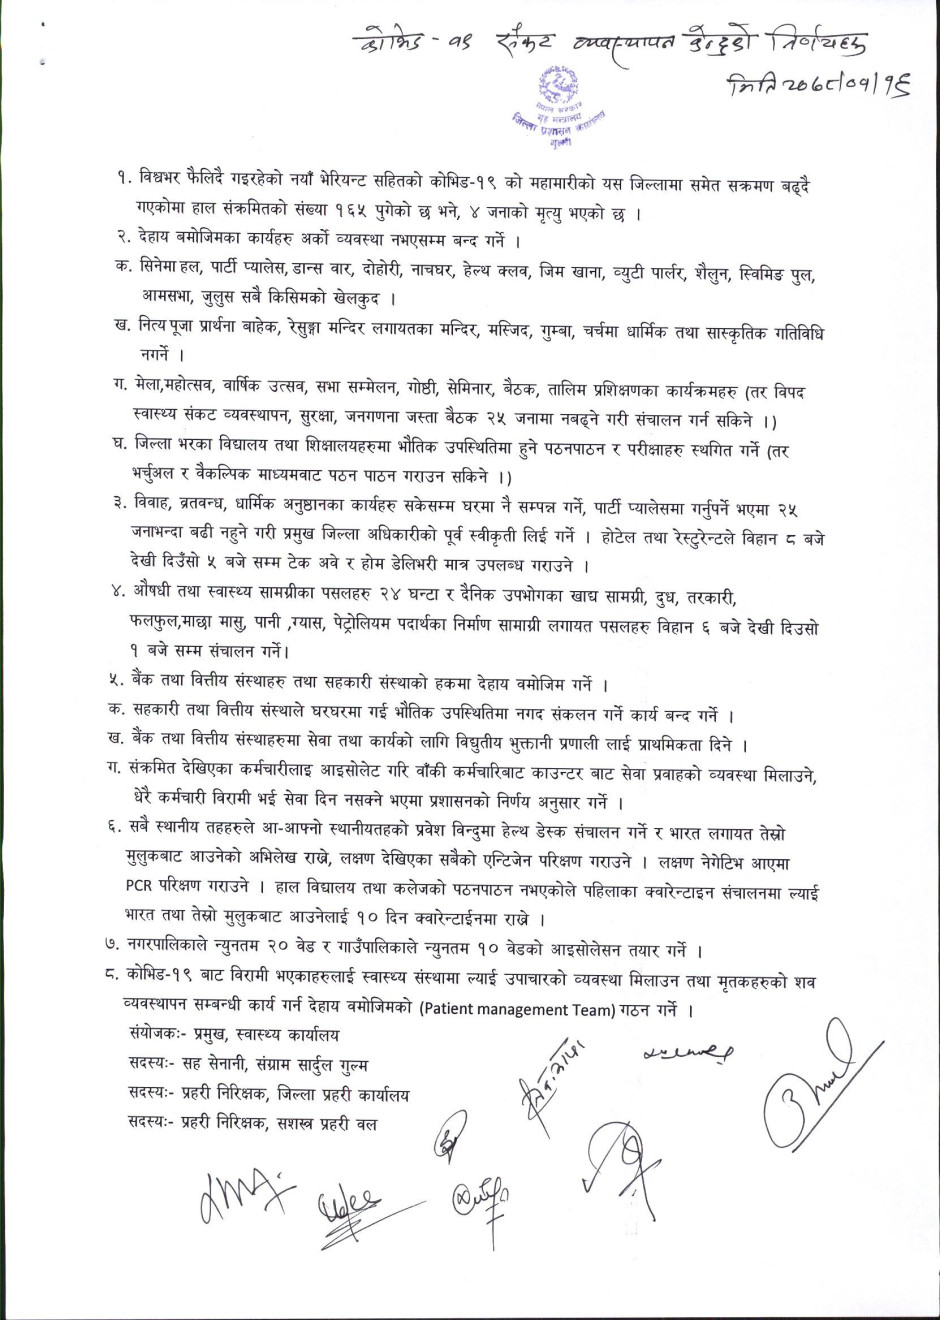 कोभिड - १९ संकट व्यवस्थापन केन्द्रको निर्णयहरु
मिति २०७८/०१/१६
नेपाल सरकार
गृह मन्त्रालय
जिल्ला प्रशासन कार्यालय
गुल्मी
१. विश्वभर फैलिदै गइरहेको नयाँ भेरियन्ट सहितको कोभिड-१९ को महामारीको यस जिल्लामा समेत सक्रमण बढ्दै
गएकोमा हाल संक्रमितको संख्या १६५ पुगेको छ भने, ४ जनाको मृत्यु भएको छ ।
२. देहाय बमोजिमका कार्यहरु अर्को व्यवस्था नभएसम्म बन्द गर्ने ।
क. सिनेमा हल, पार्टी प्यालेस, डान्स वार, दोहोरी, नाचघर, हेल्थ क्लव, जिम खाना, व्युटी पार्लर, शैलुन, स्विमिङ पुल,
आमसभा, जुलुस सबै किसिमको खेलकुद ।
ख. नित्य पूजा प्रार्थना बाहेक, रेसुङ्गा मन्दिर लगायतका मन्दिर, मस्जिद, गुम्बा, चर्चमा धार्मिक तथा सास्कृतिक गतिविधि
नगर्ने ।
ग. मेला,महोत्सव, वार्षिक उत्सव, सभा सम्मेलन, गोष्ठी, सेमिनार, बैठक, तालिम प्रशिक्षणका कार्यक्रमहरु (तर विपद
स्वास्थ्य संकट व्यवस्थापन, सुरक्षा, जनगणना जस्ता बैठक २५ जनामा नबढ्ने गरी संचालन गर्न सकिने ।)
घ. जिल्ला भरका विद्यालय तथा शिक्षालयहरुमा भौतिक उपस्थितिमा हुने पठनपाठन र परीक्षाहरु स्थगित गर्ने (तर
भर्चुअल र वैकल्पिक माध्यमवाट पठन पाठन गराउन सकिने ।)
३. विवाह, व्रतवन्ध, धार्मिक अनुष्ठानका कार्यहरु सकेसम्म घरमा नै सम्पन्न गर्ने, पार्टी प्यालेसमा गर्नुपर्ने भएमा २५
जनाभन्दा बढी नहुने गरी प्रमुख जिल्ला अधिकारीको पूर्व स्वीकृती लिई गर्ने । होटेल तथा रेस्टुरेन्टले विहान ८ बजे
देखी दिउँसो ५ बजे सम्म टेक अवे र होम डेलिभरी मात्र उपलब्ध गराउने ।
४. औषधी तथा स्वास्थ्य सामग्रीका पसलहरु २४ घन्टा र दैनिक उपभोगका खाद्य सामग्री, दुध, तरकारी,
फलफुल,माछा मासु, पानी ,ग्यास, पेट्रोलियम पदार्थका निर्माण सामाग्री लगायत पसलहरु विहान ६ बजे देखी दिउसो
१ बजे सम्म संचालन गर्ने।
५. बैंक तथा वित्तीय संस्थाहरु तथा सहकारी संस्थाको हकमा देहाय वमोजिम गर्ने ।
क. सहकारी तथा वित्तीय संस्थाले घरघरमा गई भौतिक उपस्थितिमा नगद संकलन गर्ने कार्य बन्द गर्ने ।
ख. बैंक तथा वित्तीय संस्थाहरुमा सेवा तथा कार्यको लागि विद्युतीय भुक्तानी प्रणाली लाई प्राथमिकता दिने ।
ग. संक्रमित देखिएका कर्मचारीलाइ आइसोलेट गरि वाँकी कर्मचारिबाट काउन्टर बाट सेवा प्रवाहको व्यवस्था मिलाउने,
धेरै कर्मचारी विरामी भई सेवा दिन नसक्ने भएमा प्रशासनको निर्णय अनुसार गर्ने ।
६. सबै स्थानीय तहहरुले आ-आफ्नो स्थानीयतहको प्रवेश विन्दुमा हेल्थ डेस्क संचालन गर्ने र भारत लगायत तेस्रो
मुलुकबाट आउनेको अभिलेख राख्ने, लक्षण देखिएका सबैको एन्टिजेन परिक्षण गराउने । लक्षण नेगेटिभ आएमा
PCR परिक्षण गराउने । हाल विद्यालय तथा कलेजको पठनपाठन नभएकोले पहिलाका क्वारेन्टाइन संचालनमा ल्याई
भारत तथा तेस्रो मुलुकबाट आउनेलाई १० दिन क्वारेन्टाईनमा राख्ने ।
७. नगरपालिकाले न्युनतम २० वेड र गाउँपालिकाले न्युनतम १० वेडको आइसोलेसन तयार गर्ने ।
८. कोभिड-१९ बाट विरामी भएकाहरुलाई स्वास्थ्य संस्थामा ल्याई उपाचारको व्यवस्था मिलाउन तथा मृतकहरुको शव
व्यवस्थापन सम्बन्धी कार्य गर्न देहाय वमोजिमको (Patient management Team) गठन गर्ने ।
संयोजकः- प्रमुख, स्वास्थ्य कार्यालय
सदस्यः- सह सेनानी, संग्राम सार्दुल गुल्म
सदस्यः- प्रहरी निरिक्षक, जिल्ला प्रहरी कार्यालय
सदस्यः- प्रहरी निरिक्षक, सशस्त्र प्रहरी वल